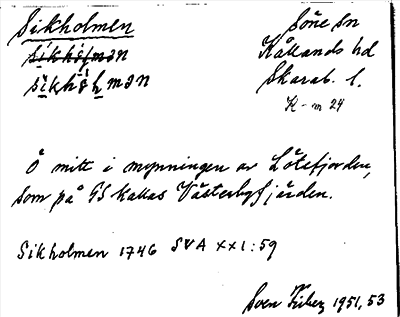 Sikholmen
Söne sn
sikhólmən
Kållands hd
sikhòlmən
Skarab. l.
K-m 24
Ö mitt i mynningen av Lötefjorden,
som på GS kallas Västerbyfjärden.
Sikholmen 1746 SVA XXI:59
Sven 1951, 53